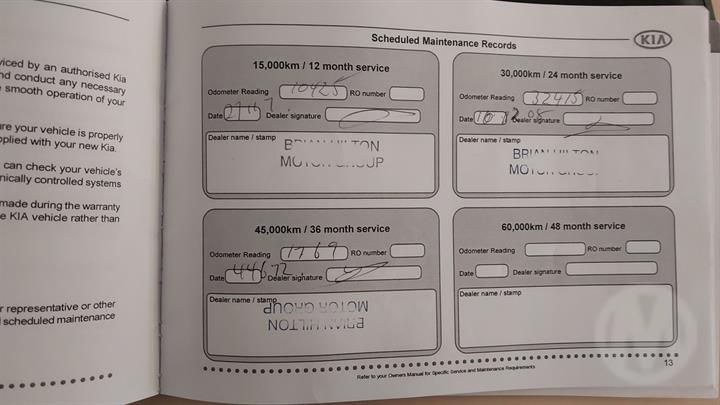 viced by an authorised Kia
nd conduct any necessary
smooth operation of your
re your vehicle is properly
pplied with your new Kia.
can check your vehicle's
nically controlled systems
made during the warranty
e KIA vehicle rather than
r representative or other
scheduled maintenance
Scheduled Maintenance Records
KIA
15,000km / 12 month service
Odometer Reading 10425 RO number
Date Dealer signature
Dealer name / stamp
BRIAN HILTON
MOTOR GROUP
30,000km / 24 month service
Odometer Reading 32415 RO number
Date Dealer signature
Dealer name / stamp
BRIAN HILTON
MOTOR GROUP
45,000km / 36 month service
Odometer Reading 1769 RO number
Date 44672 Dealer signature
Dealer name / stamp
BRIAN HILTON
MOTOR GROUP
60,000km / 48 month service
Odometer Reading RO number
Date Dealer signature
Dealer name / stamp
13
Refer to your Owners Manual for Specific Service and Maintenance Requirements